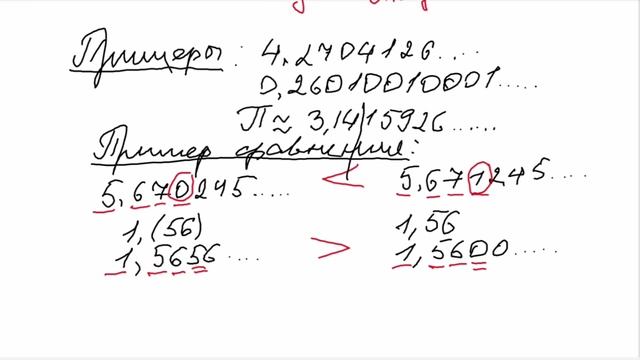 Примеры: 4,2704126....
0,26010010001.....
П ≈ 3,1415926.....
Пример сравнения:
5,670245..... < 5,671245....
1,(56) 1,56
1,5656.... > 1,5600.....